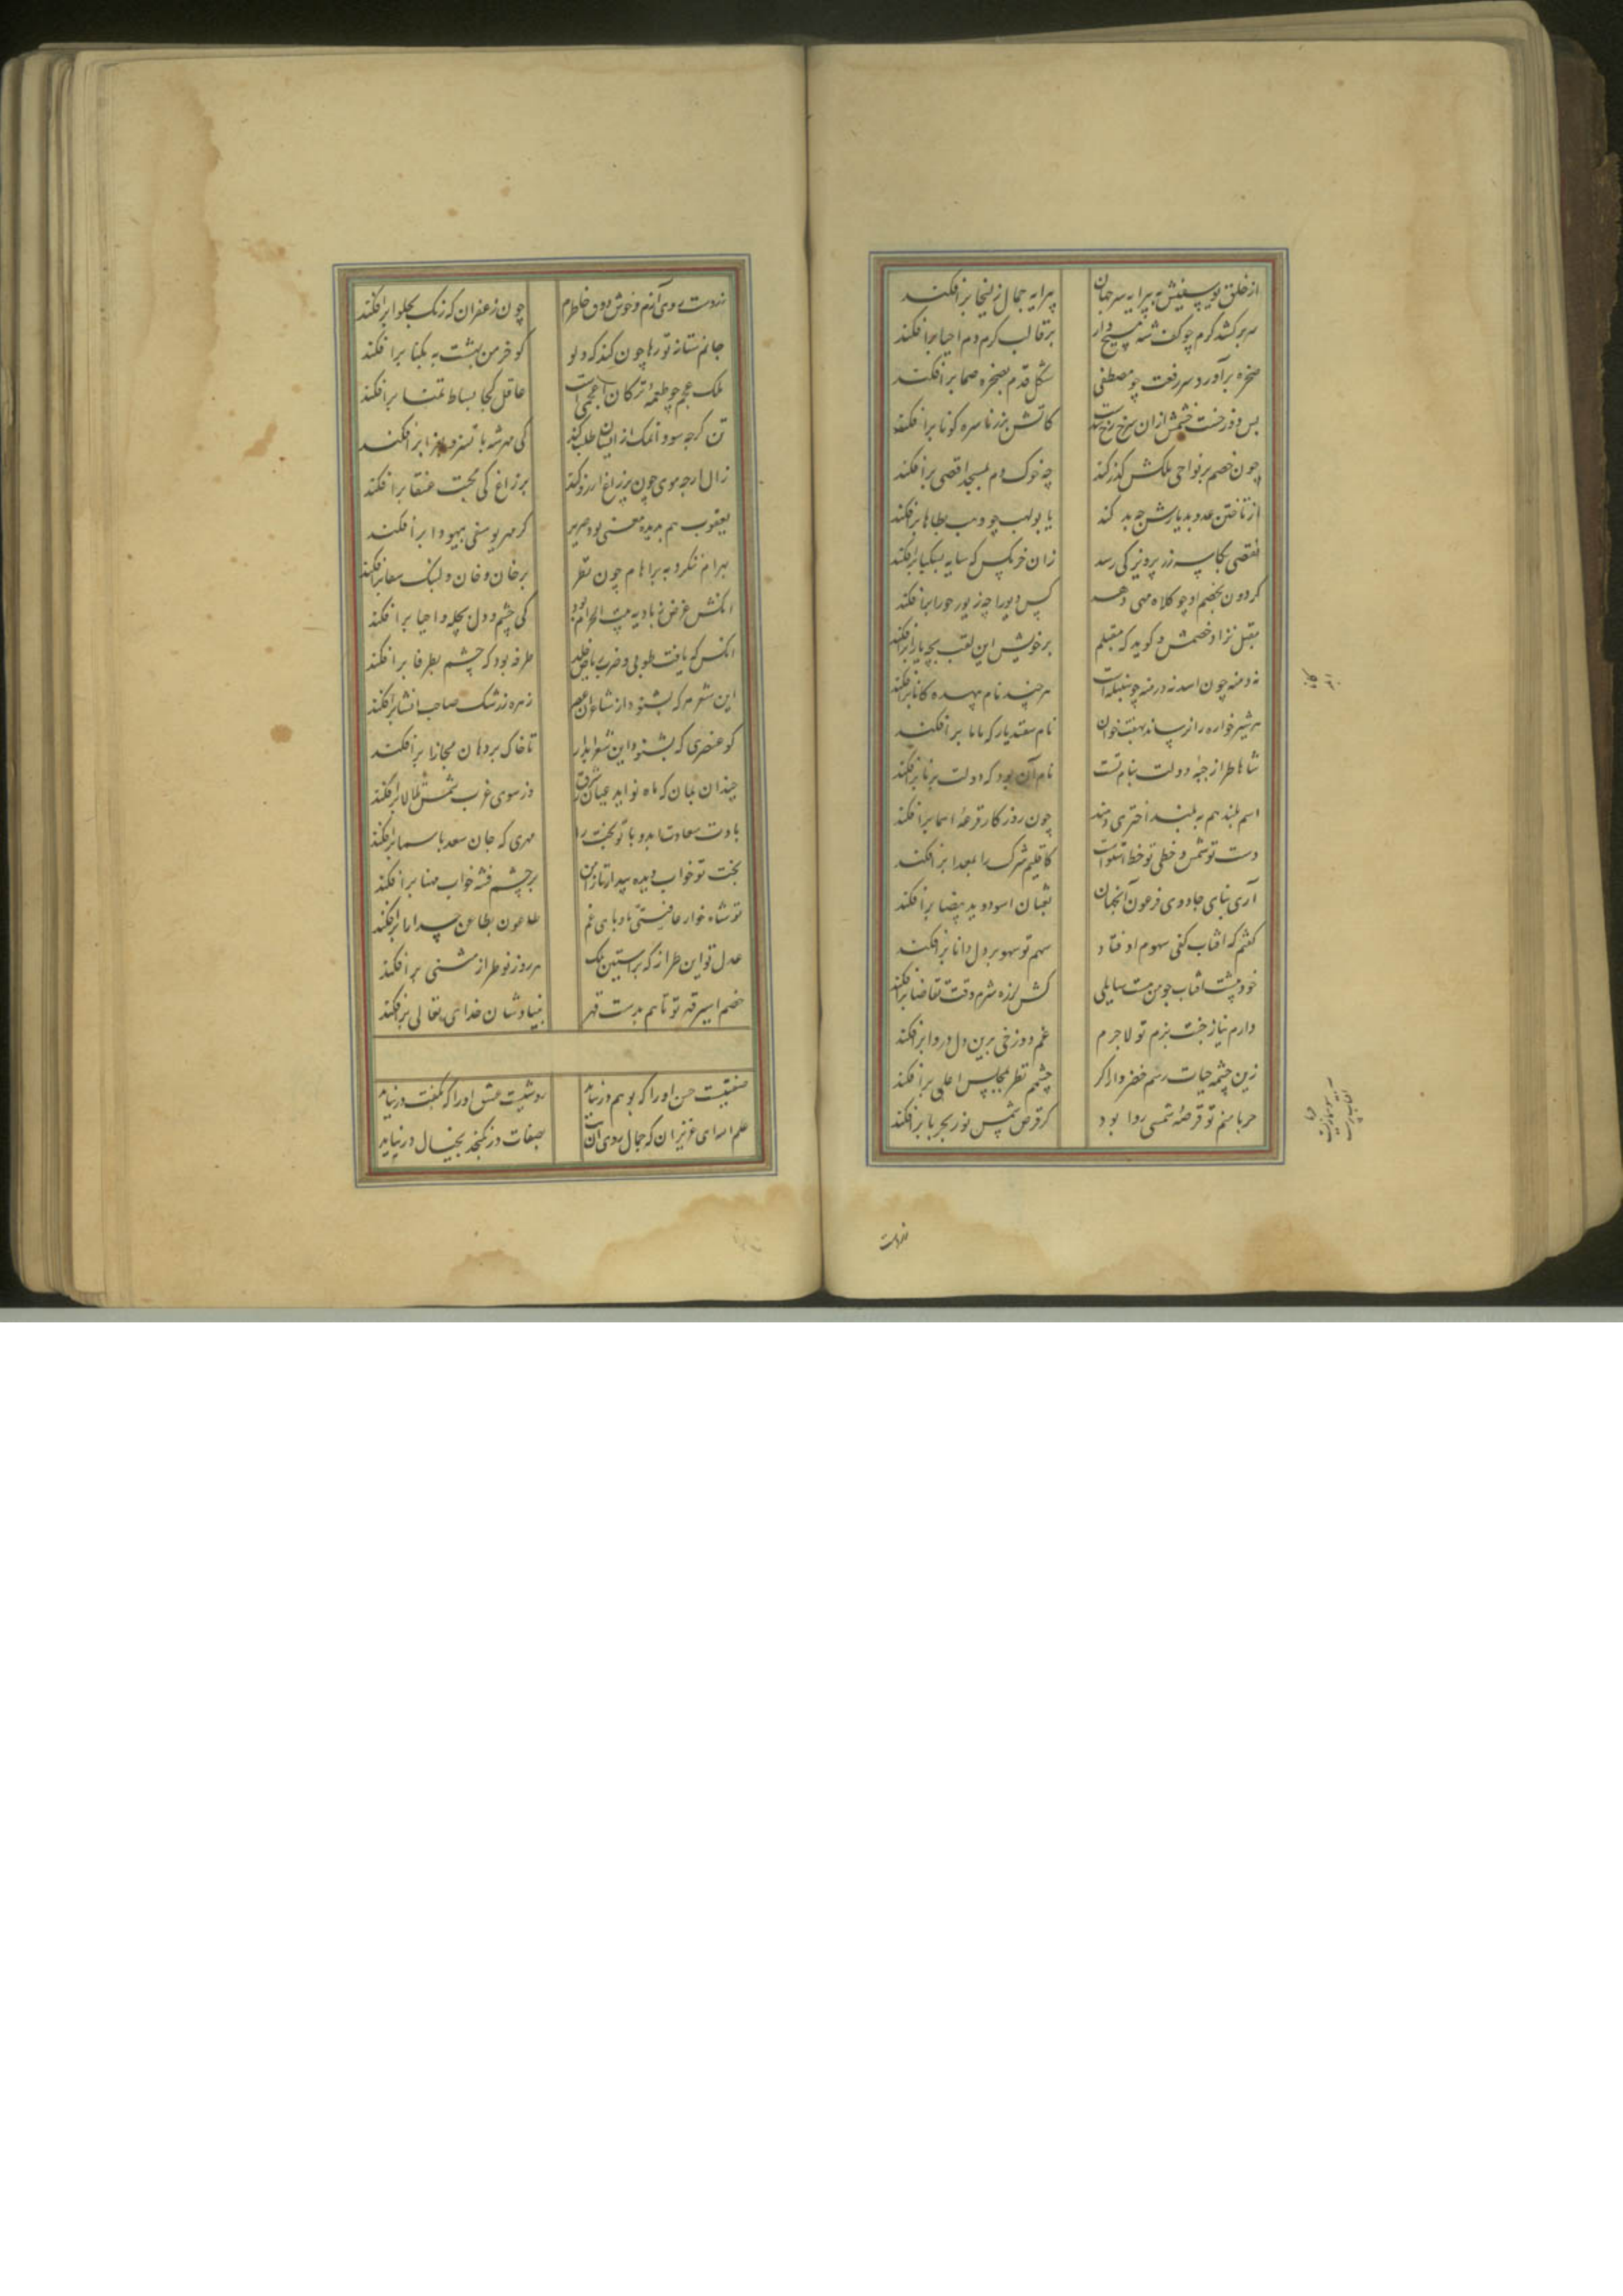 از خلق یوسفیش به پیرایه سر جهان
پیرایه جمال زلیخا برافکند
سر برکشد کرم چو کف شه مسیح وار
بر قالب کرم دم احیا برافکند
صخره برآورد سر رفعت چو مصطفی
شکل قدم بصخره صما برافکند
بس دوزخست خشمش ازان سرخ رخ شدست
کاتش بزر ناسره کونا برافکند
چون خصم بر نواحی ملکش گذر کند
چه خوک دم بمسجد اقصی برافکند
از تاختن عدو بدیارش چه بد کند
یا بولهب چو دب بطاها برافکند
نقصی بکاسه زر پرویز کی رسد
زان خرمکس که سایه بسکبا برافکند
کردون بخصم او چو کلاه مهی دهد
کس دیو را چه زیور حورا برافکند
مقبل نزاد خصمش و کوید که مقبلم
بر خویش این لقب بچه یارا برافکند
نه دمنه چون اسد نه درمنه چو سنبله است
هرچند نام بیهده کانا برافکند
هر شیرخواره را نرساند بهفتخوان
نام سفندیار که ماما برافکند
شاها طراز جبه دولت بنام تست
نام آن بود که دولت برنا برافکند
اسم بلند هم به بلند اختری دهند
چون روزکار قرعه اسما برافکند
دست تو شمس و خطی تو خط استواست
کاقلیم شرک را بعدا برافکند
آری بنای جادوی فرعون ازجهان
ثعبان اسود و ید بیضا برافکند
گفتم که آفتاب کفی سهوم اوفتاد
سهم تو سهو بر دل دانا برافکند
خود پشت آفتاب چو من مست سایلی
کش لرزه شرم وقت تقاضا برافکند
دارم نیاز جنت بزم تو لاجرم
غم دوزخی برین دل دروا برافکند
زین چشمه حیات رسم خضر وار اکر
چشمم نظر بمجلس اعلی برافکند
حربا منم تو قرصه شمسی روا بود
کر قرص شمس نور بحربا برافکند
نزدت
نزدت روی آنم و خوش دون خاطرم
چون زعفران که رنک بحلوا برافکند
جانم ستاند تو رها چون کند که دلو
کو خرمن بهشت به بکنا برافکند
ملک عجم چو طعمه ترکان اعجمی است
عاقل کجا بساط تمنا برافکند
تن کرچه سو و اکمک از ایشان طلب کند
کی مهر شه باتسز و بغرا برافکند
زال ارچه موی چون پر زاغ آرزو کند
بر زاغ کی محبت عنقا برافکند
یعقوب هم بدیده معنی بود ضریر
کر مهر یوسفی بیهودا برافکند
بهرام ننکرد به براهام چون نظر
بر خان و خوان ولنبک سقا برافکند
آنکش غرض ز بادیه بیت الحرام بود
کی چشم و دل بحله و احیا برافکند
آنکس که یافت طوبی و طرف ریاض خلد
طرفه بود که چشم بطرفا برافکند
این شعر هر که بشنود از شاعران عصر
زهره ز رشک صاحب انشا برافکند
کو عنصری که بشنود این شعر آبدار
تا خاک بر دهان مجارا برافکند
چندان بمان که ماه نو آید عیان ز شرق
وز سوی غرب شمس تلالا برافکند
بادت سعادت ابد و با تو بخت را
مهری که جان سعد باسما برافکند
بخت تو خواب دیده بیدار تا ز امن
بر چشم فتنه خواب مهنا برافکند
تو شاد خوار عافیتی تا وبای غم
طاعون بطاعن حسدآرا برافکند
عدل تو این طراز که بر آستین ملک
هر روز نو طراز مثنی برافکند
خصم اسیر قهر تو تا هم بدست قهر
بنیادشان خدای تعالی برافکند
صفتیست حسن او را که بوهم در نیاید
روشیست عشق او را که بکفت در نیاید
علم الله ای عزیزان که جمال روی آن بت
بصفات در نکنجد بخیال در نیاید